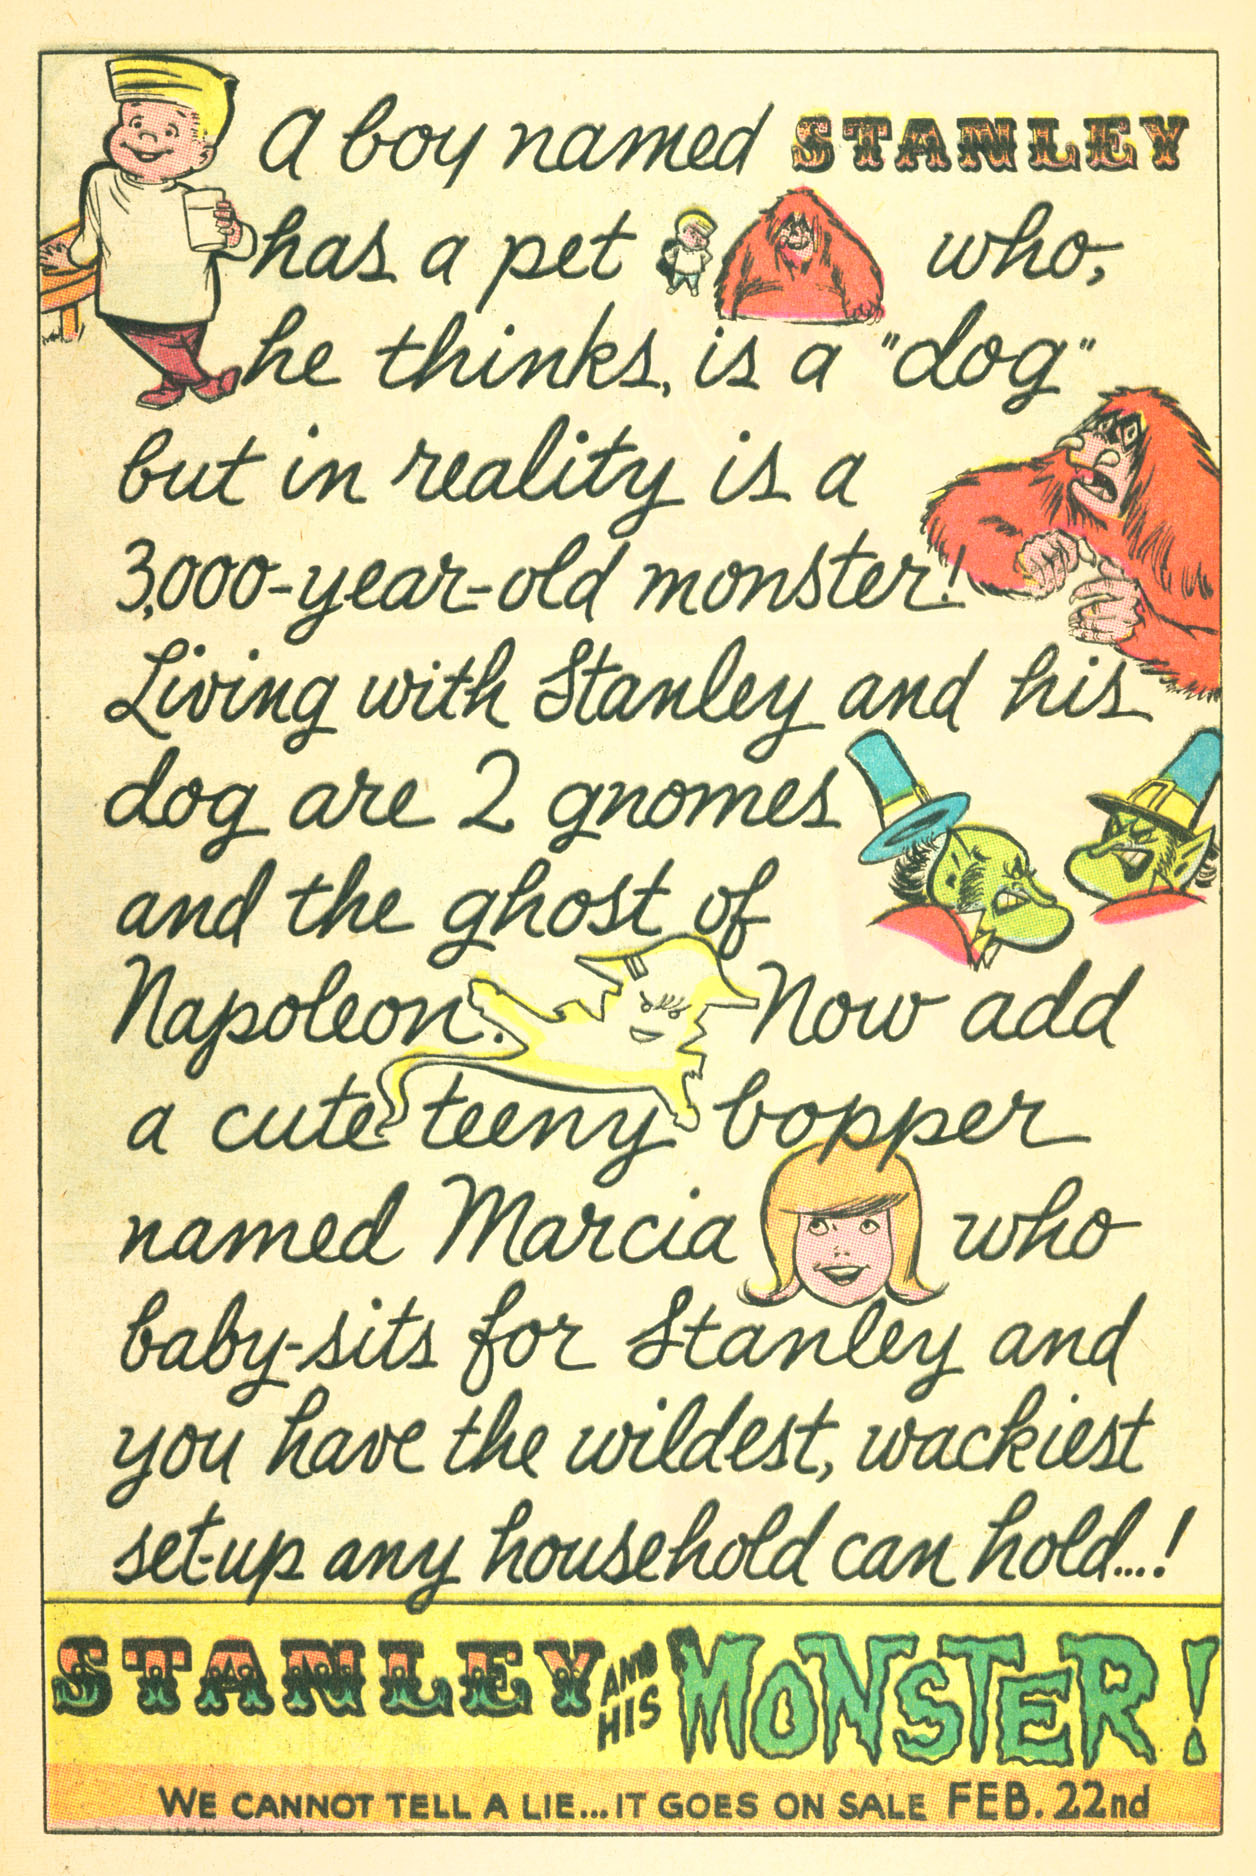 A boy named STANLEY
has a pet who,
he thinks, is a "dog"
but in reality is a
3,000-year-old monster!
Living with Stanley and his
dog are 2 gnomes
and the ghost of
Napoleon. Now add
a cute teeny bopper
named Marcia who
baby-sits for Stanley and
you have the wildest, wackiest
set-up any household can hold...!
STANLEY AND HIS MONSTER!
WE CANNOT TELL A LIE...IT GOES ON SALE FEB. 22nd